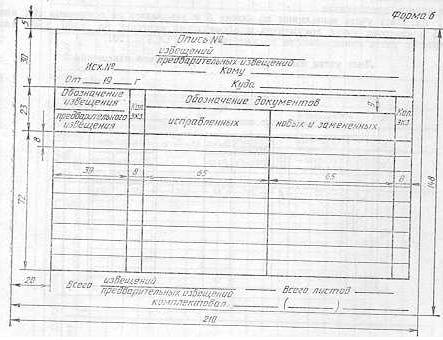 Форма 6
Опись №
извещений
предварительных извещений
Исх.№ Кому
От 19 г Куда
Обозначение извещения предварительного извещения
Кол. экз
Обозначение документов
9
Кол. экз
исправленных
новых и замененных
5
30
23
8
72
39 8 65 65 8
148
20
Всего извещений Всего листов
предварительных извещений
комплектовал ( )
210